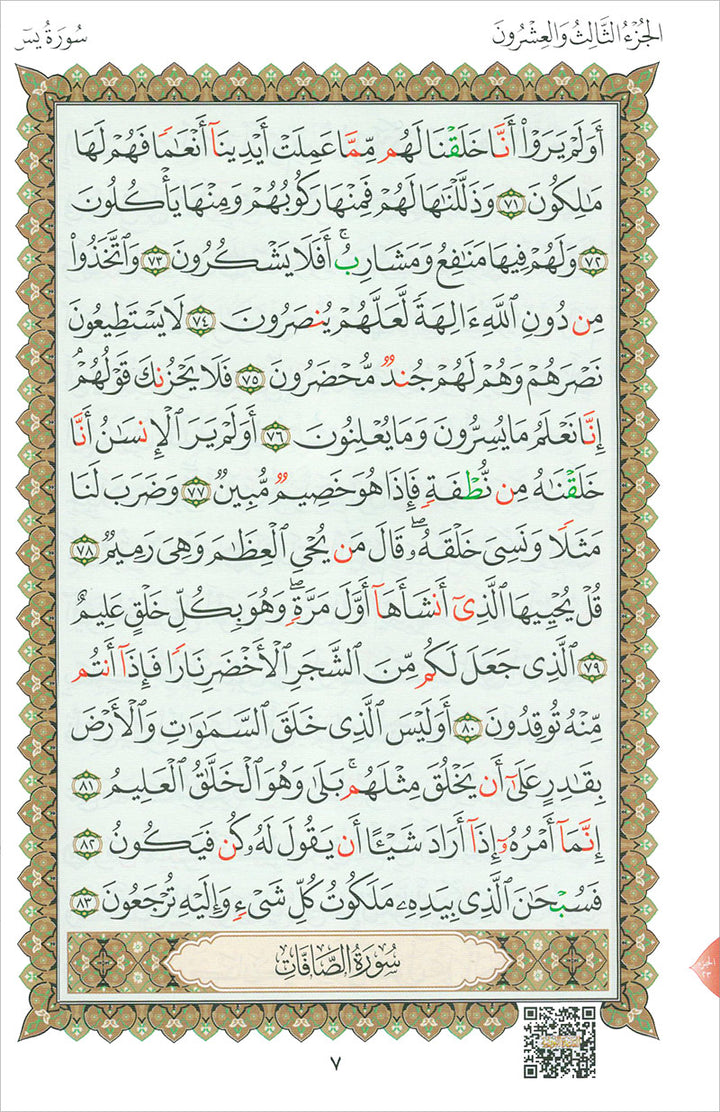 الجُزْءُ الثَّالِثُ وَالعِشْرُونَ
سُورَةُ يسٓ
أَوَلَمْ يَرَوْا۟ أَنَّا خَلَقْنَا لَهُم مِّمَّا عَمِلَتْ أَيْدِينَآ أَنْعَٰمًا فَهُمْ لَهَا
مَٰلِكُونَ ٧١ وَذَلَّلْنَٰهَا لَهُمْ فَمِنْهَا رَكُوبُهُمْ وَمِنْهَا يَأْكُلُونَ
٧٢ وَلَهُمْ فِيهَا مَنَٰفِعُ وَمَشَارِبُ ۚ أَفَلَا يَشْكُرُونَ ٧٣ وَٱتَّخَذُوا۟
مِن دُونِ ٱللَّهِ ءَالِهَةً لَّعَلَّهُمْ يُنصَرُونَ ٧٤ لَا يَسْتَطِيعُونَ
نَصْرَهُمْ وَهُمْ لَهُمْ جُندٌ مُّحْضَرُونَ ٧٥ فَلَا يَحْزُنكَ قَوْلُهُمْ
إِنَّا نَعْلَمُ مَا يُسِرُّونَ وَمَا يُعْلِنُونَ ٧٦ أَوَلَمْ يَرَ ٱلْإِنسَٰنُ أَنَّا
خَلَقْنَٰهُ مِن نُّطْفَةٍ فَإِذَا هُوَ خَصِيمٌ مُّبِينٌ ٧٧ وَضَرَبَ لَنَا
مَثَلًا وَنَسِىَ خَلْقَهُۥ ۖ قَالَ مَن يُحْىِ ٱلْعِظَٰمَ وَهِىَ رَمِيمٌ ٧٨
قُلْ يُحْيِيهَا ٱلَّذِىٓ أَنشَأَهَآ أَوَّلَ مَرَّةٍ ۖ وَهُوَ بِكُلِّ خَلْقٍ عَلِيمٌ
٧٩ ٱلَّذِى جَعَلَ لَكُم مِّنَ ٱلشَّجَرِ ٱلْأَخْضَرِ نَارًا فَإِذَآ أَنتُم
مِّنْهُ تُوقِدُونَ ٨٠ أَوَلَيْسَ ٱلَّذِى خَلَقَ ٱلسَّمَٰوَٰتِ وَٱلْأَرْضَ
بِقَٰدِرٍ عَلَىٰٓ أَن يَخْلُقَ مِثْلَهُم ۚ بَلَىٰ وَهُوَ ٱلْخَلَّٰقُ ٱلْعَلِيمُ ٨١
إِنَّمَآ أَمْرُهُۥٓ إِذَآ أَرَادَ شَيْـًٔا أَن يَقُولَ لَهُۥ كُن فَيَكُونُ ٨٢
فَسُبْحَٰنَ ٱلَّذِى بِيَدِهِۦ مَلَكُوتُ كُلِّ شَىْءٍ وَإِلَيْهِ تُرْجَعُونَ ٨٣
سُورَةُ الصَّافَّاتِ
الجزء
٢٣
٧